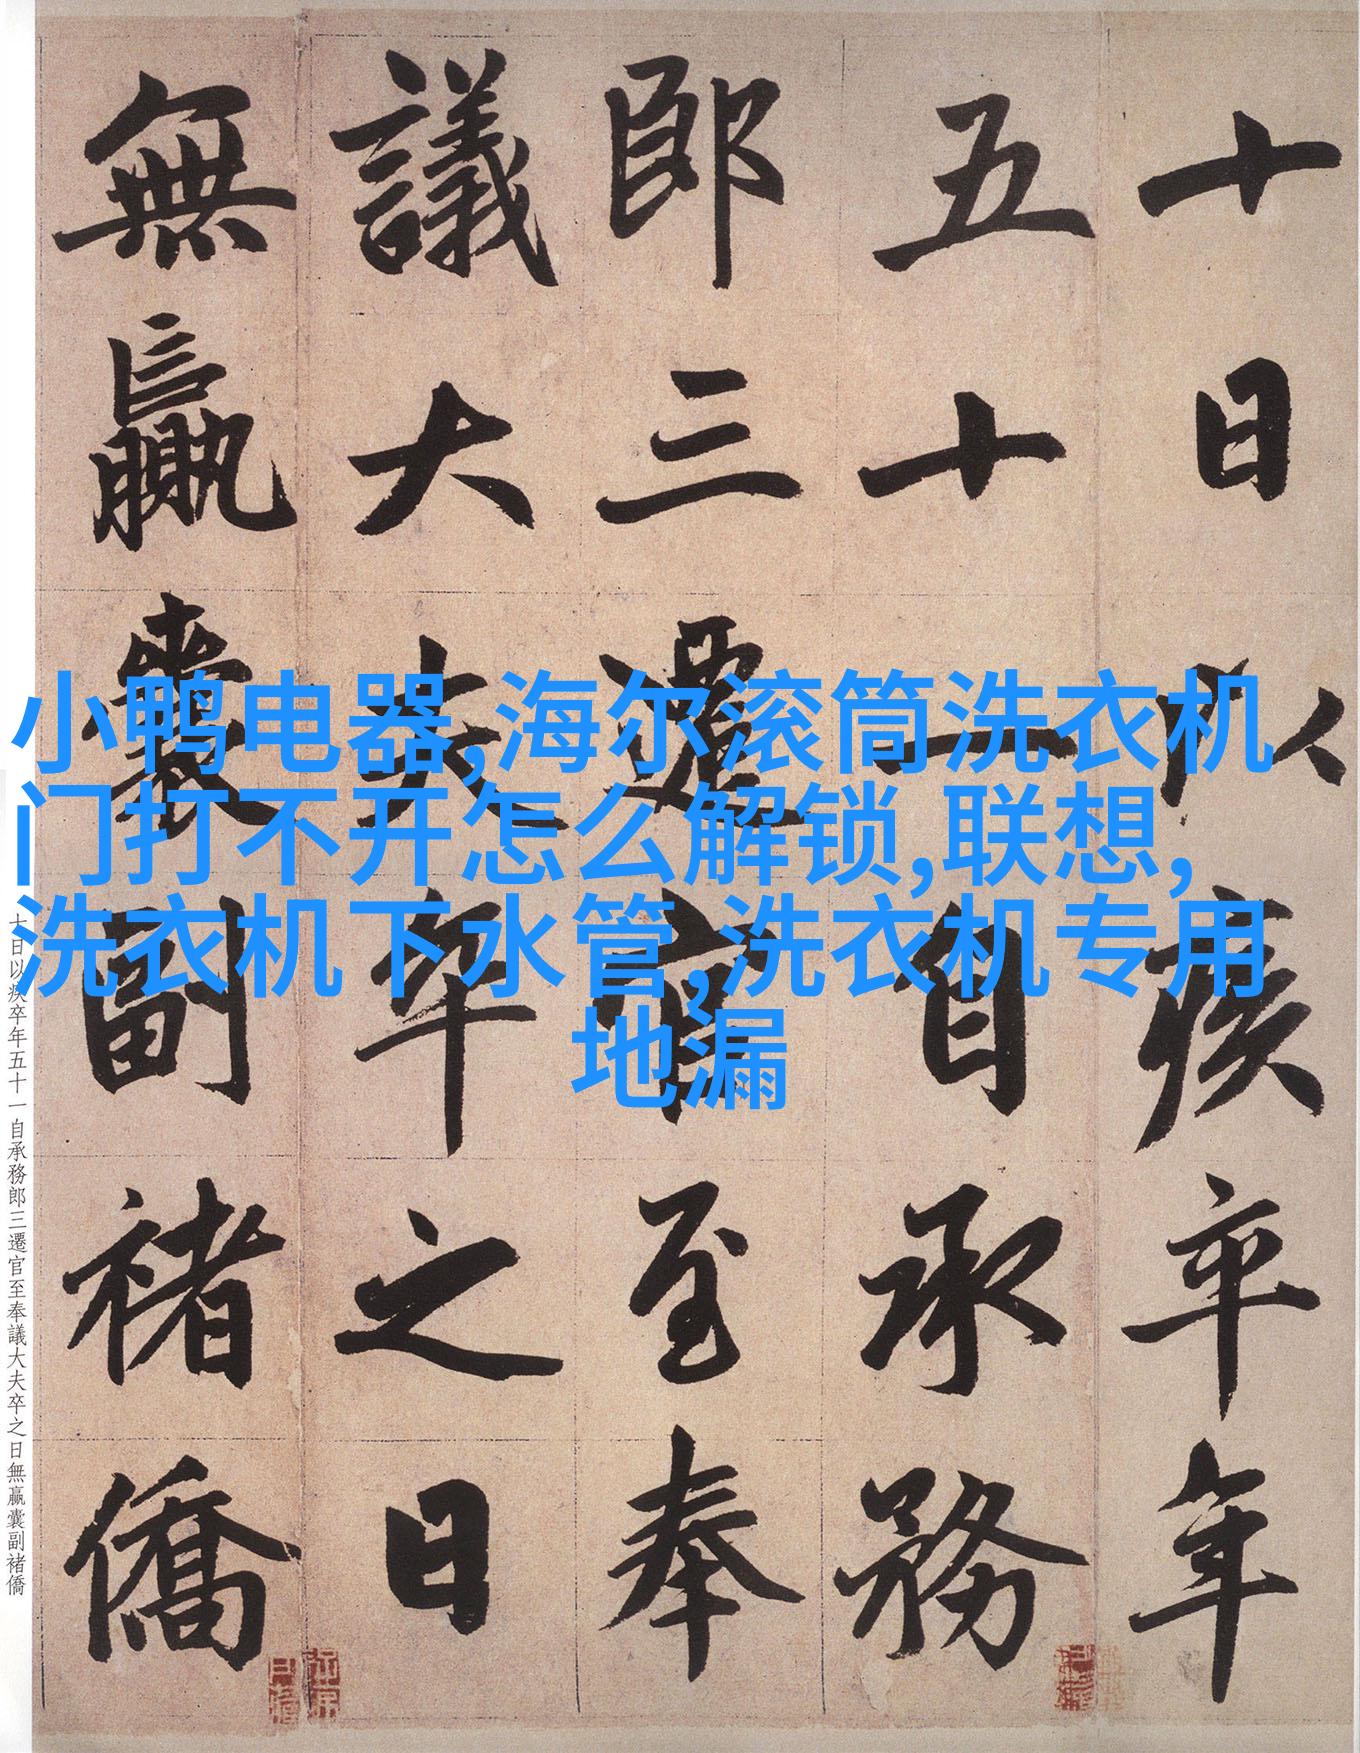 十日以疾卒年
五十一自承務
郎三遷官至奉
議大夫卒之日
無贏囊副褚僑
小鸭电器,海尔滚筒洗衣机
门打不开怎么解锁,联想,
洗衣机下水管,洗衣机专用
地漏
十日以疾卒年五十一自承務郎三遷官至奉議大夫卒之日無贏囊副褚僑